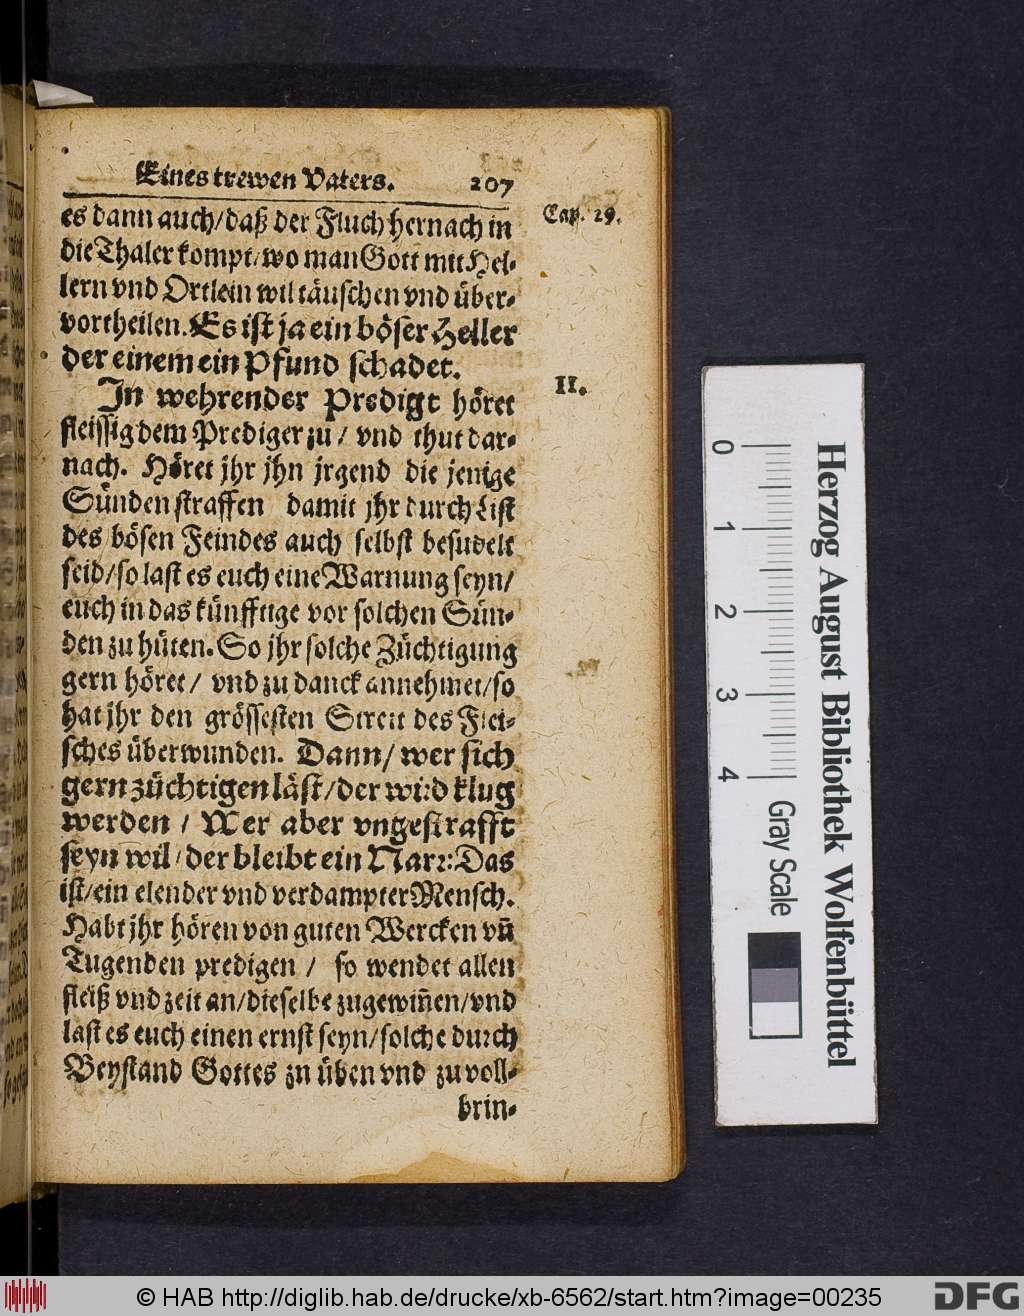 Eines trewen Vaters. 207
es dann auch/daß der Fluch hernach in
Cap. 29.
die Thaler kompt/wo man Gott mit Hel-
lern vnd Ortlein wil täuschen vnd über-
vortheilen. Es ist ja ein böser Heller
der einem ein Pfund schadet.
II.
In wehrender Predigt höret
fleissig dem Prediger zu/ vnd thut dar-
nach. Höret jhr jhn jrgend die jenige
Sünden straffen damit jhr durch List
des bösen Feindes auch selbst besudelt
seid/so last es euch eine Warnung seyn/
euch in das künfftige vor solchen Sün-
den zu hüten. So jhr solche Züchtigung
gern höret/ vnd zu danck annehmet/so
hat jhr den grössesten Streit des Flei-
sches überwunden. Dann/ wer sich
gern züchtigen läst/der wird klug
werden / Wer aber vngestrafft
seyn wil/der bleibt ein Narr: Das
ist/ein elender vnd verdampter Mensch.
Habt jhr hören von guten Wercken vñ
Tugenden predigen / so wendet allen
fleiß vnd zeit an/dieselbe zugewiñen/vnd
last es euch einen ernst seyn/solche durch
Beystand Gottes zn üben vnd zu voll-
brin-
0 1 2 3 4
Gray Scale
Herzog August Bibliothek Wolfenbüttel
© HAB http://diglib.hab.de/drucke/xb-6562/start.htm?image=00235
DFG